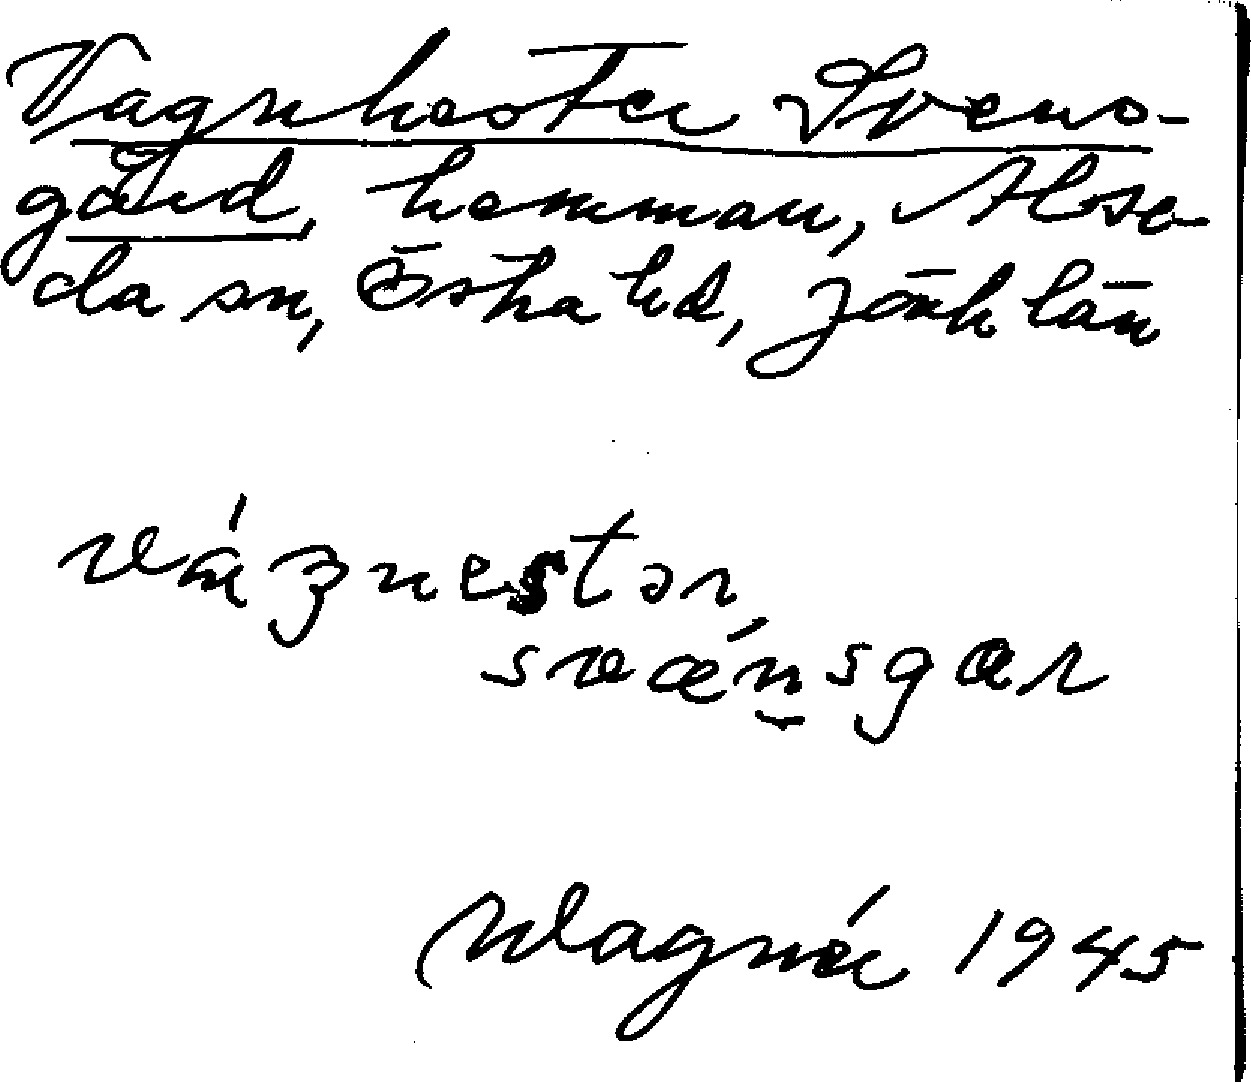 Vagnhester Svens-
gård, hemman, Alse-
da sn, Östra hd, Jönk län
vagnestər
svænsgar
Wagnér 1945